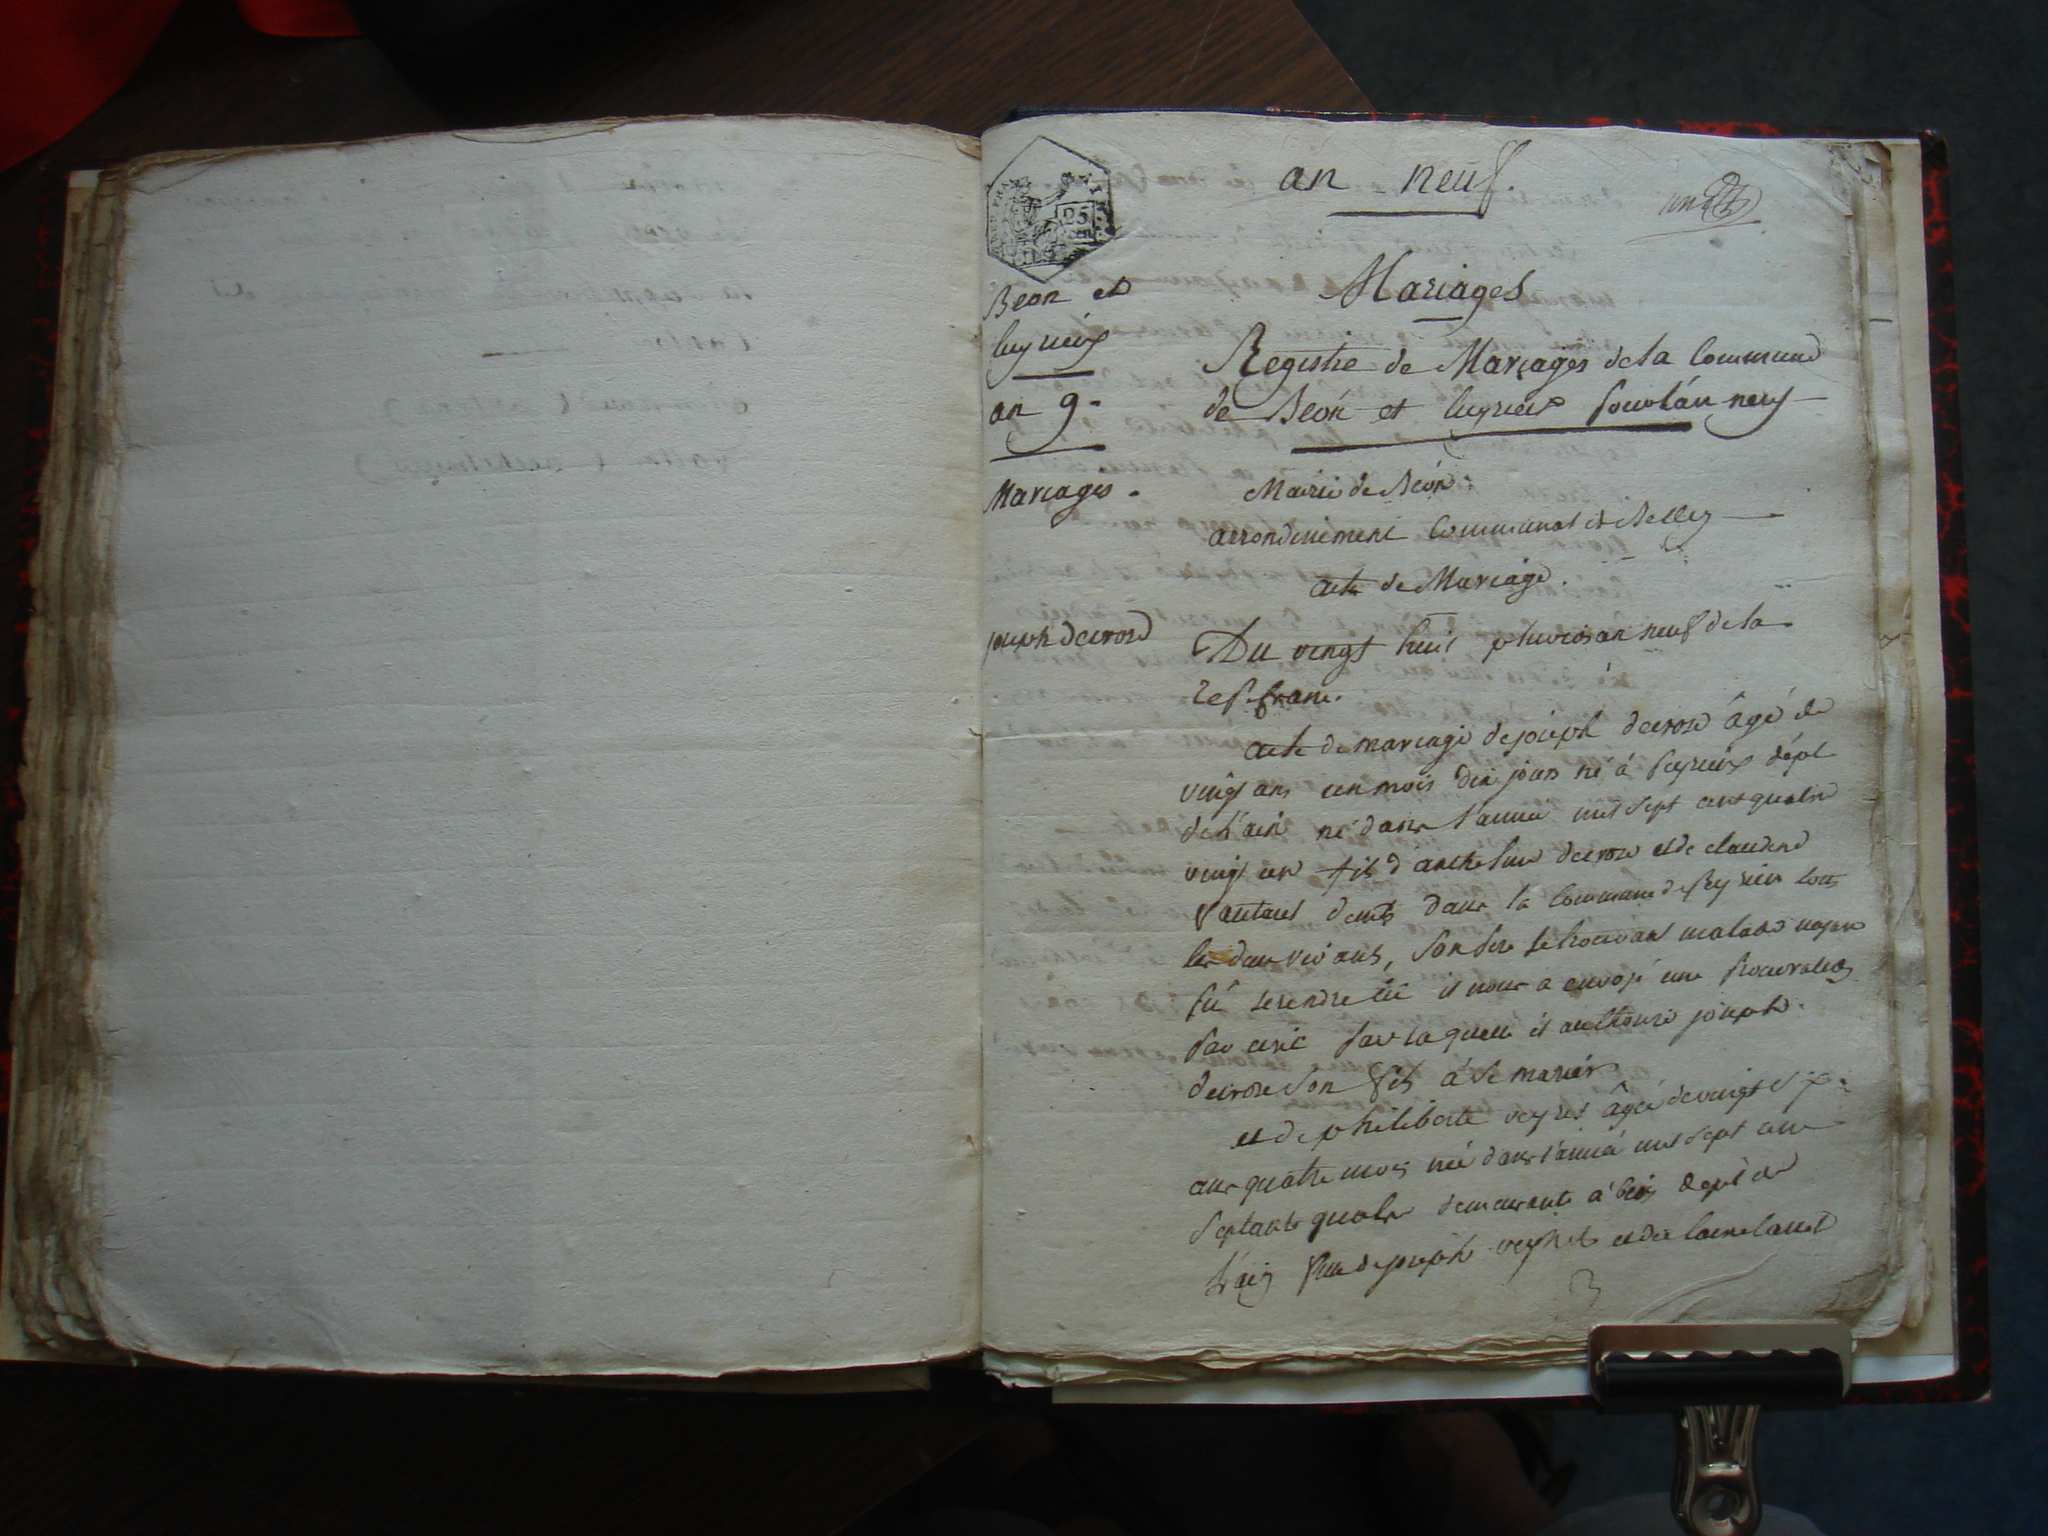 an neuf.
25
cen
Mariages
Beon et
luyrieux
an 9.
Registre de Mariages de la Commune
de Béon et luyrieux pour l'an neuf
Mariages.
Mairie de Béon
arrondissement Communal de Belley
acte de Mariage.
joseph decroso
Du vingt huit pluviose an neuf de la
rep. franc.
acte de mariage de joseph decroso âgé de
vingt ans un mois dix jours né à peyrieux dépt
de l'ain né dans l'année mil sept cent quatre
vingt un fils d'anthelme decroso et de claudine
demts dans la commune de peyrieu tous
les deux vivants, son pere se trouvant malade
pû se rendre ici il nous a envoyé une procuration
par écrit par laquelle il authorise joseph
decroso son fils à se marier
et de philiberte veyret âgée de vingt six
ans quatre mois née dans l'année mil sept cent
septante quatre demeurante à béon dept de
l'ain fille de joseph veyret et de